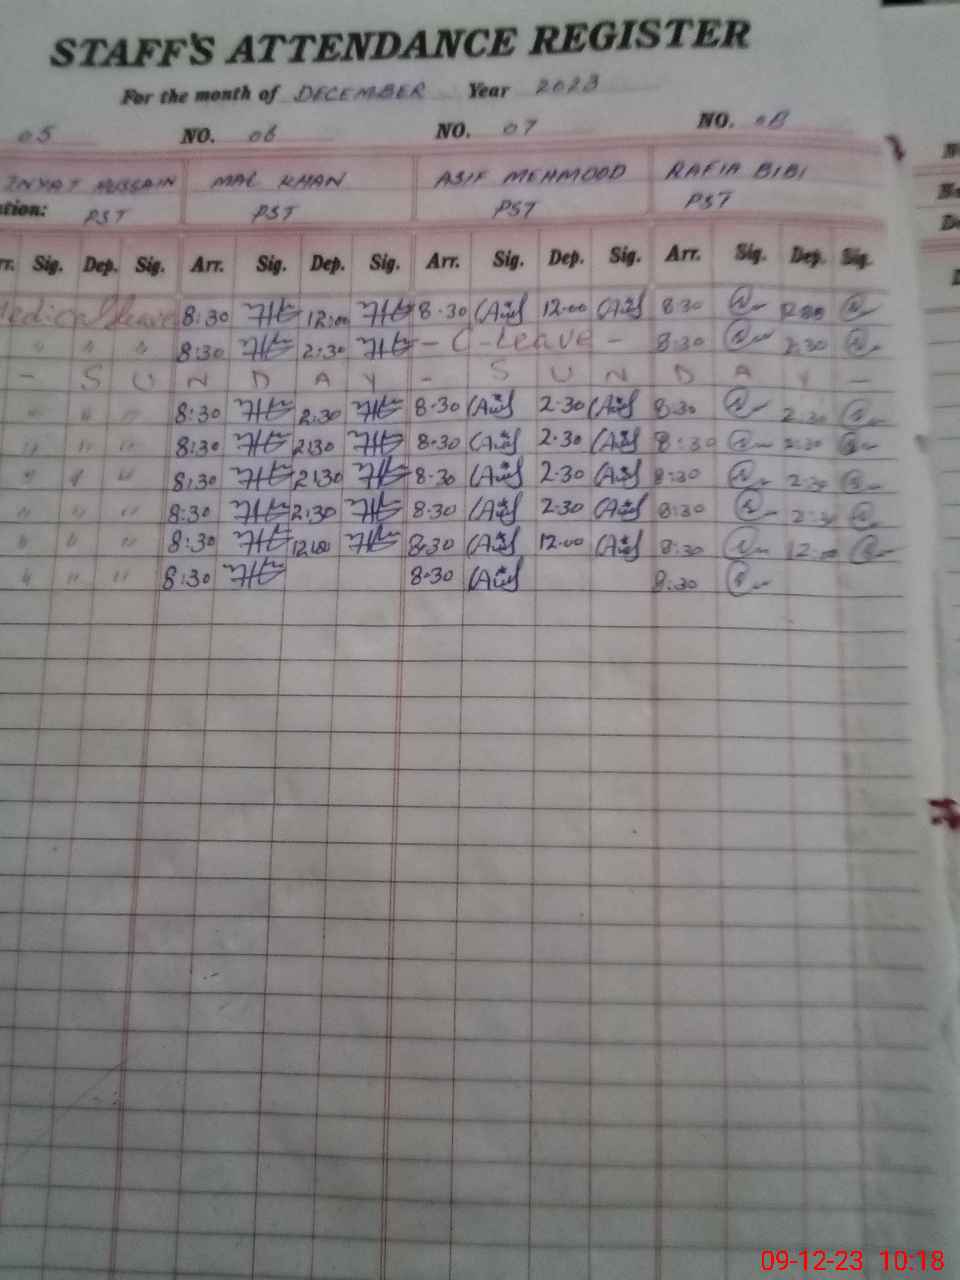 STAFF'S ATTENDANCE REGISTER
For the month of DECEMBER Year 2023
05 NO. 06 NO. 07 NO. 08
INYAT HUSSAIN MAL KHAN ASIF MEHMOOD RAFIA BIBI
ation: PST PST PST PST
rr. Sig. Dep. Sig. Arr. Sig. Dep. Sig. Arr. Sig. Dep. Sig. Arr. Sig. Dep. Sig.
Medical leave 8:30 12:00 8.30 12.00 8:30
" " " 8:30 2:30 - C-leave - 8:30 2:30
- S U N D A Y - S U N D A Y -
" " " 8:30 2:30 8.30 2.30 8:30 2:30
" " " 8:30 2:30 8.30 2.30 8:30 2:30
" " " 8:30 2:30 8.30 2.30 8:30 2:30
" " " 8:30 2:30 8.30 2.30 8:30 2:30
" " " 8:30 12:00 8.30 12.00 8:30 12:00
" " " 8:30 8.30 8:30
09-12-23 10:18